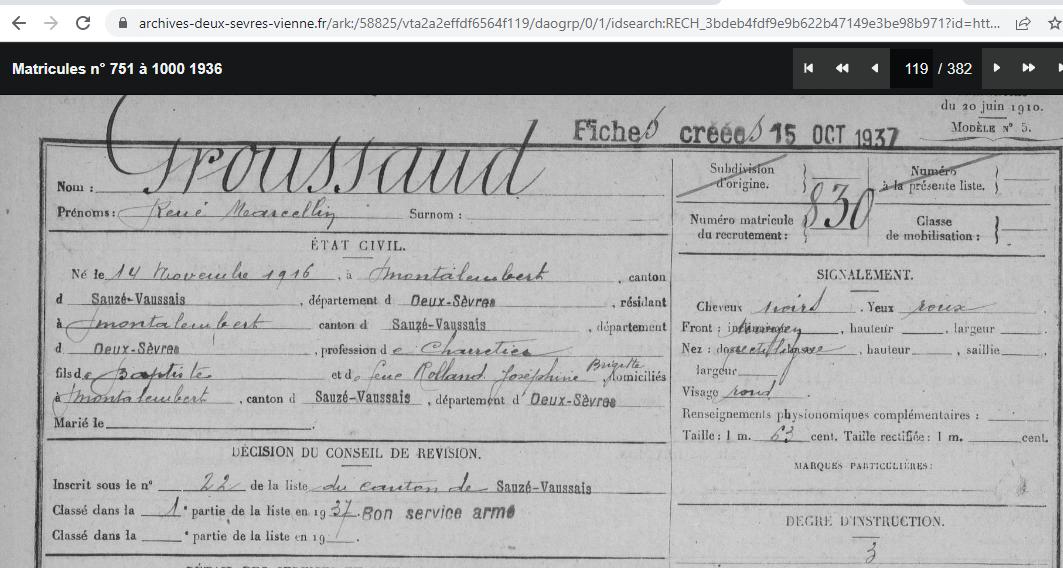 archives-deux-sevres-vienne.fr/ark:/58825/vta2a2effdf6564f119/daogrp/0/1/idsearch:RECH_3bdeb4fdf9e9b622b47149e3be98b971?id=htt...
Matricules n° 751 à 1000 1936
119 / 382
du 20 juin 1910.
Modèle N° 5.
Fiches créées 15 OCT 1937
Nom : Groussaud
Prénoms : René Marcellin Surnom :
Subdivision d'origine.
Numéro à la présente liste.
Numéro matricule du recrutement : 830
Classe de mobilisation :
ÉTAT CIVIL.
Né le 14 Novembre 1916, à Montalembert, canton
d Sauzé-Vaussais, département d Deux-Sèvres, résidant
à Montalembert canton d Sauzé-Vaussais, département
d Deux-Sèvres, profession de Charretier
fils de Baptiste et de feue Rolland Joséphine Brigitte domiciliés
à Montalembert, canton d Sauzé-Vaussais, département d Deux-Sèvres
Marié le .
SIGNALEMENT.
Cheveux noirs. Yeux roux
Front : moyen, hauteur, largeur
Nez : dos rectiligne, hauteur, saillie
largeur
Visage rond.
Renseignements physionomiques complémentaires :
Taille : 1 m. 63 cent. Taille rectifiée : 1 m. cent.
MARQUES PARTICULIÈRES :
DÉCISION DU CONSEIL DE REVISION.
Inscrit sous le n° 22 de la liste du canton de Sauzé-Vaussais
Classé dans la 1e partie de la liste en 1937. Bon service armé
Classé dans la e partie de la liste en 19 .
DEGRÉ D'INSTRUCTION.
3